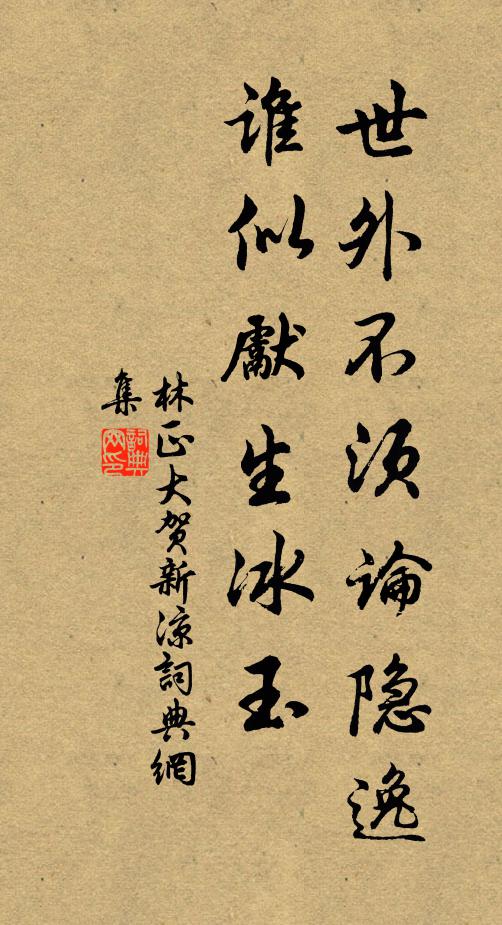 世外不须論隐逸
谁似獻生冰玉
林正大贺新凉詞典網
集
詞典網印